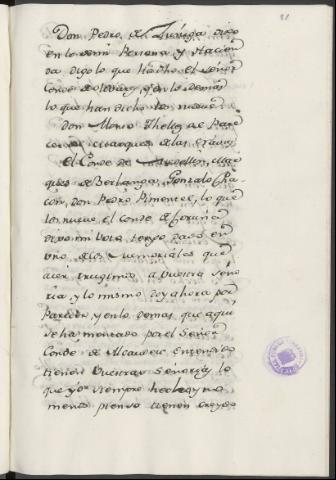 Don Pedro de Zuñiga digo
en lo de mi Persona y Hacien
da digo lo que ha dho el Señor
Conde de Olivares, y en lo demas
lo que han dicho los nueve
Don Alonso Thellez de
Marques de las
el Conde de
ques de Berlanga, Gonzalo Cha
cón, Don Pedro Pimentel, lo que
los nueve, el Conde de Coruña
digo mi Voto tengo dado en
uno de los Memoriales que
ayer truximos a Vuestra Seño
ria, y lo mismo doy ahora por
Parecer, y en lo demas, que aqui
se ha montado por el Señor
Conde de Alcaudete, entendido
tienen Vuestras Señorias, lo
que yo siempre
menos pienso tienen creydo